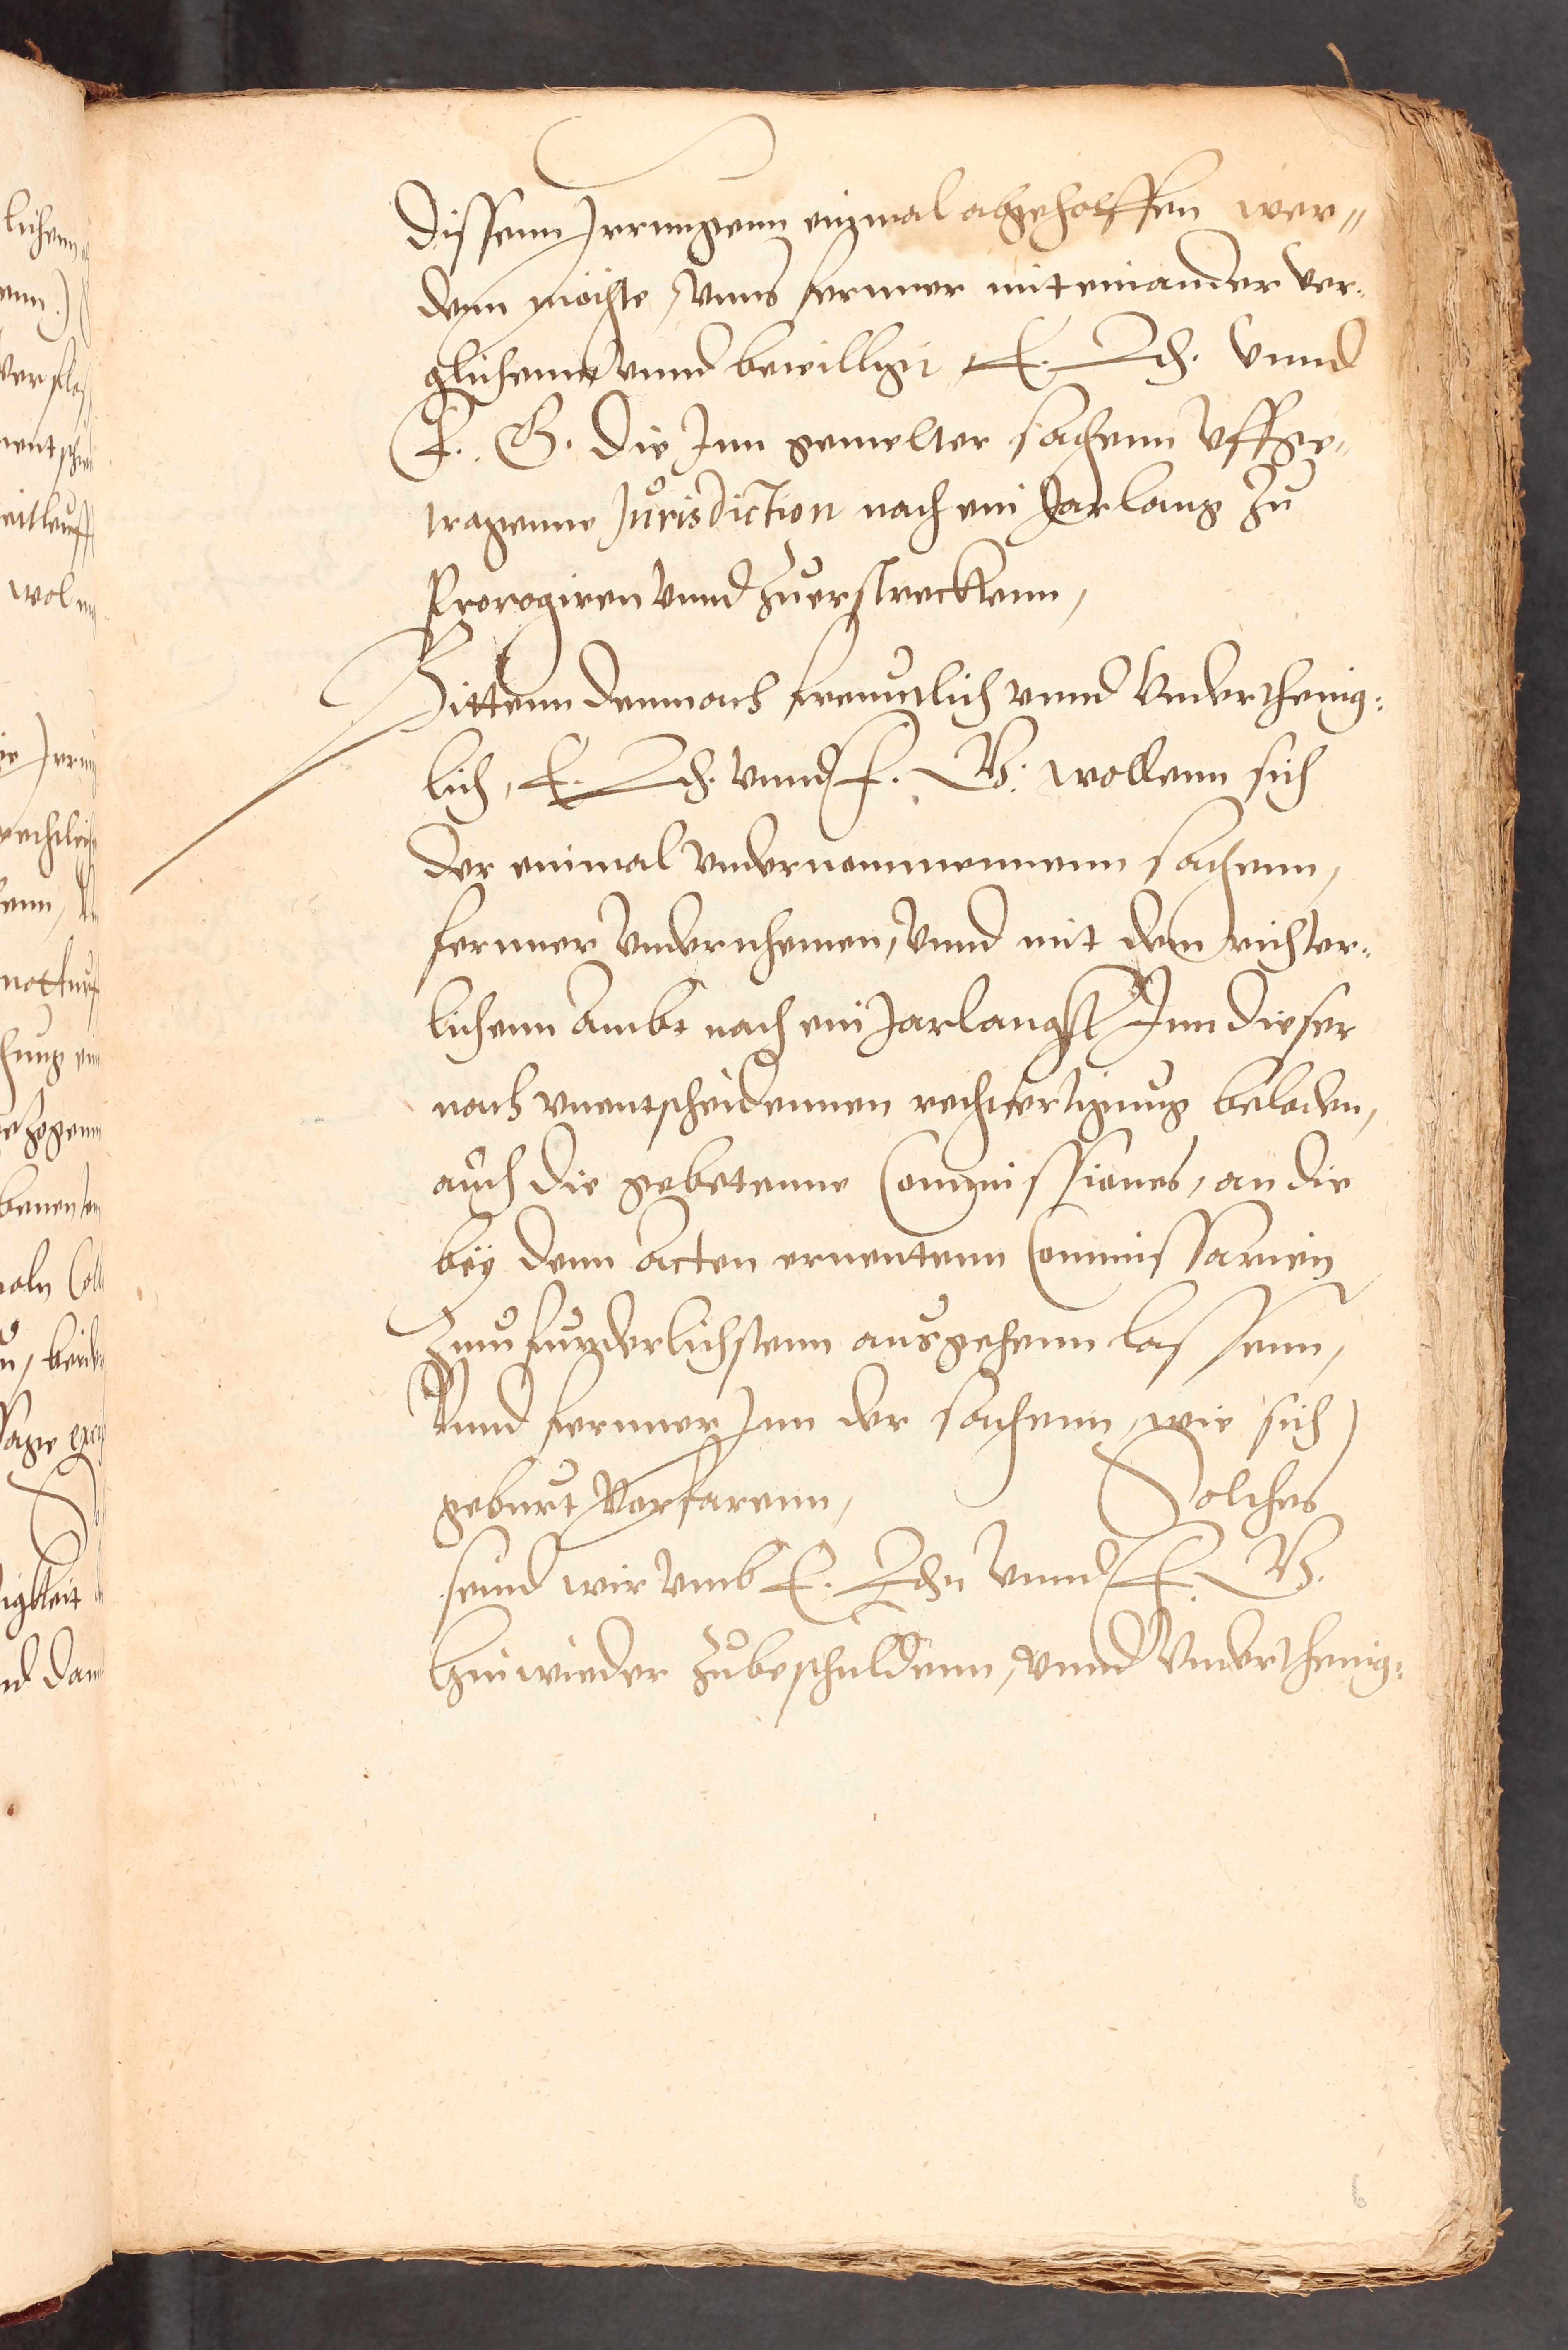 dissenn Irrungenn einmal abgeholffen wer„
denn möchte, Vnns fernner mit einander ver„
glichenn vnnd bewilligt E. L. Vnnd
F. G. die Inn gemelter sachenn Vffge„
tragenne Jurisdiction noch ein Jar lang zu
Prorogiren Vnnd zuerstreckenn,
Bittenn demnach freuntlich vnnd Vnderthenig„
lich, E. L. vnnd F. G. wollenn sich
der einmal vndernommennenn sachenn,
fernner Vndernhemen, Vnnd mit dem richter„
lichenn Ambt noch ein Jarlangk Inn dieser
noch vnentscheidennen rechtfertigung beladen,
auch die gebetenne Commissiones, an die
bey denn Acten ernentenn Commissarien
Zum furderlichstenn ausgehenn lassenn,
Vnnd fernner Inn der sachenn, wie sich
geburt Verfarenn, Solches
seind wir Vmb E. L. Vnnd F. G.
hinwieder zubeschuldenn, vnnd Vnderthenig„
lichenn
enn.)
wol
notturf
beiden
igkeit
6